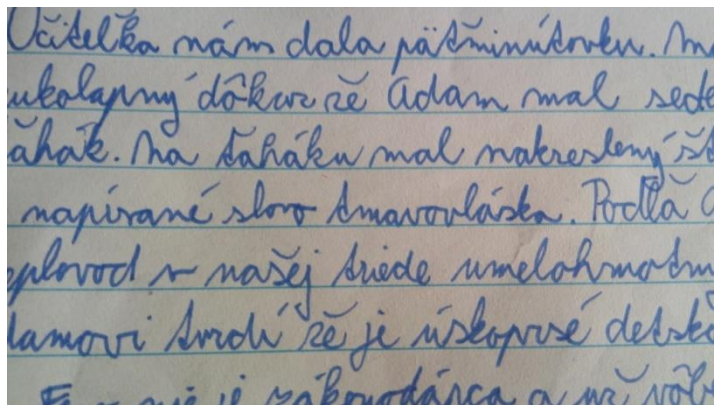 Učitelka nám dala päťminútovku. Ma
ukolapný dôkaz že Adam mal sede
ahák. Na ťaháku mal nakreslený št
napísané slovo tmavovláska. Podľa
plovod v našej triede umelohmotn
damovi tvrdí že je úskoprsé detsk
je zákonodárca a už